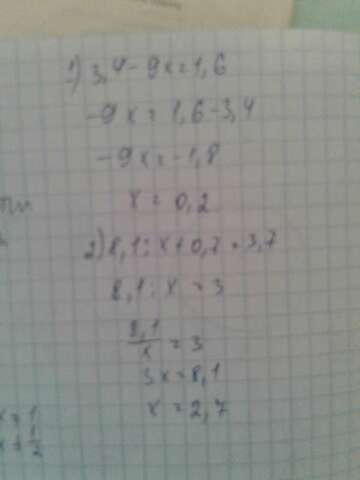 1) 3,4-9x=1,6
-9x=1,6-3,4
-9x=-1,8
x=0,2
2) 8,1:x+0,7=3,7
8,1:x=3
8,1/x=3
3x=8,1
x=2,7